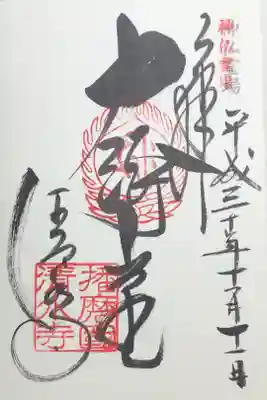 神仏霊場
奉拝 平成三十年十一月十一日
大講堂
播磨國
清水寺